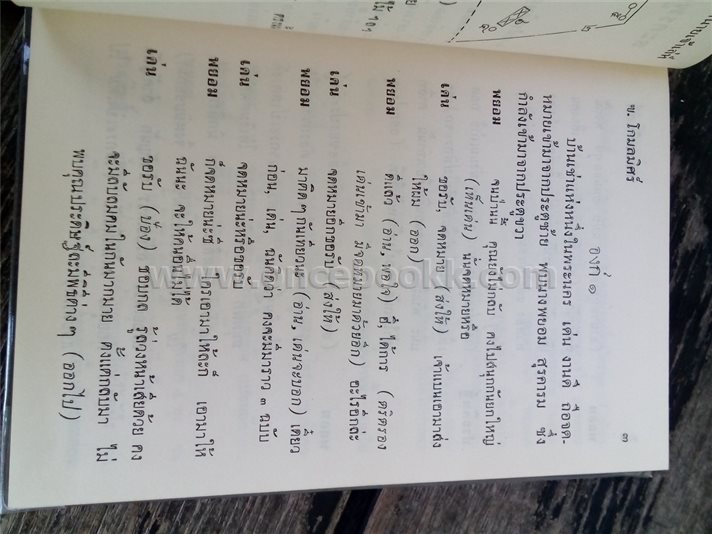 ช. โกมลมิศร์
๓
องก์ ๑
บ้านเช่าแห่งหนึ่งในพระนคร เด่น งานดี ถือจด-
หมายเข้ามาจากประตูซ้าย พบนางพยอม สุรคราม ซึ่ง
กำลังเข้ามาจากประตูขวา
พยอม จนป่านนี้ คุณยังไม่กลับ คงไปสนุกกันยกใหญ่
(เห็นเด่น) นั่นจดหมายหรือ
เด่น ขอรับ, จดหมาย (ส่งให้) เจ้าแบนเอามาส่ง
ให้ผม (ออก)
พยอม ดีแล้ว (อ่าน, พอใจ) ฮึ, ได้การ (ตริตรอง
เด่นเข้ามา มีจดหมายมาด้วยอีก) อะไรอีกล่ะ
เด่น จดหมายอีกขอรับ (ส่งให้)
พยอม มาติดๆ กันเทียวนะ (อ่าน, เด่นจะออก) เดี๋ยว
ก่อน, เด่น, ฉันคิดว่า คงจะมีมาราว ๓ ฉบับ
เด่น จดหมายน่ะหรือขอรับ
พยอม ก็จดหมายน่ะซี ใครเอามาให้ละก็ เอามาให้
ฉันนะ จะให้คนอื่นไม่ได้
เด่น ขอรับ (ป้อง) ชอบกล รู้ล่วงหน้าเสียด้วย คง
จะมีอะไร
พบคุณประดิษฐ์
www.oncebookk.com